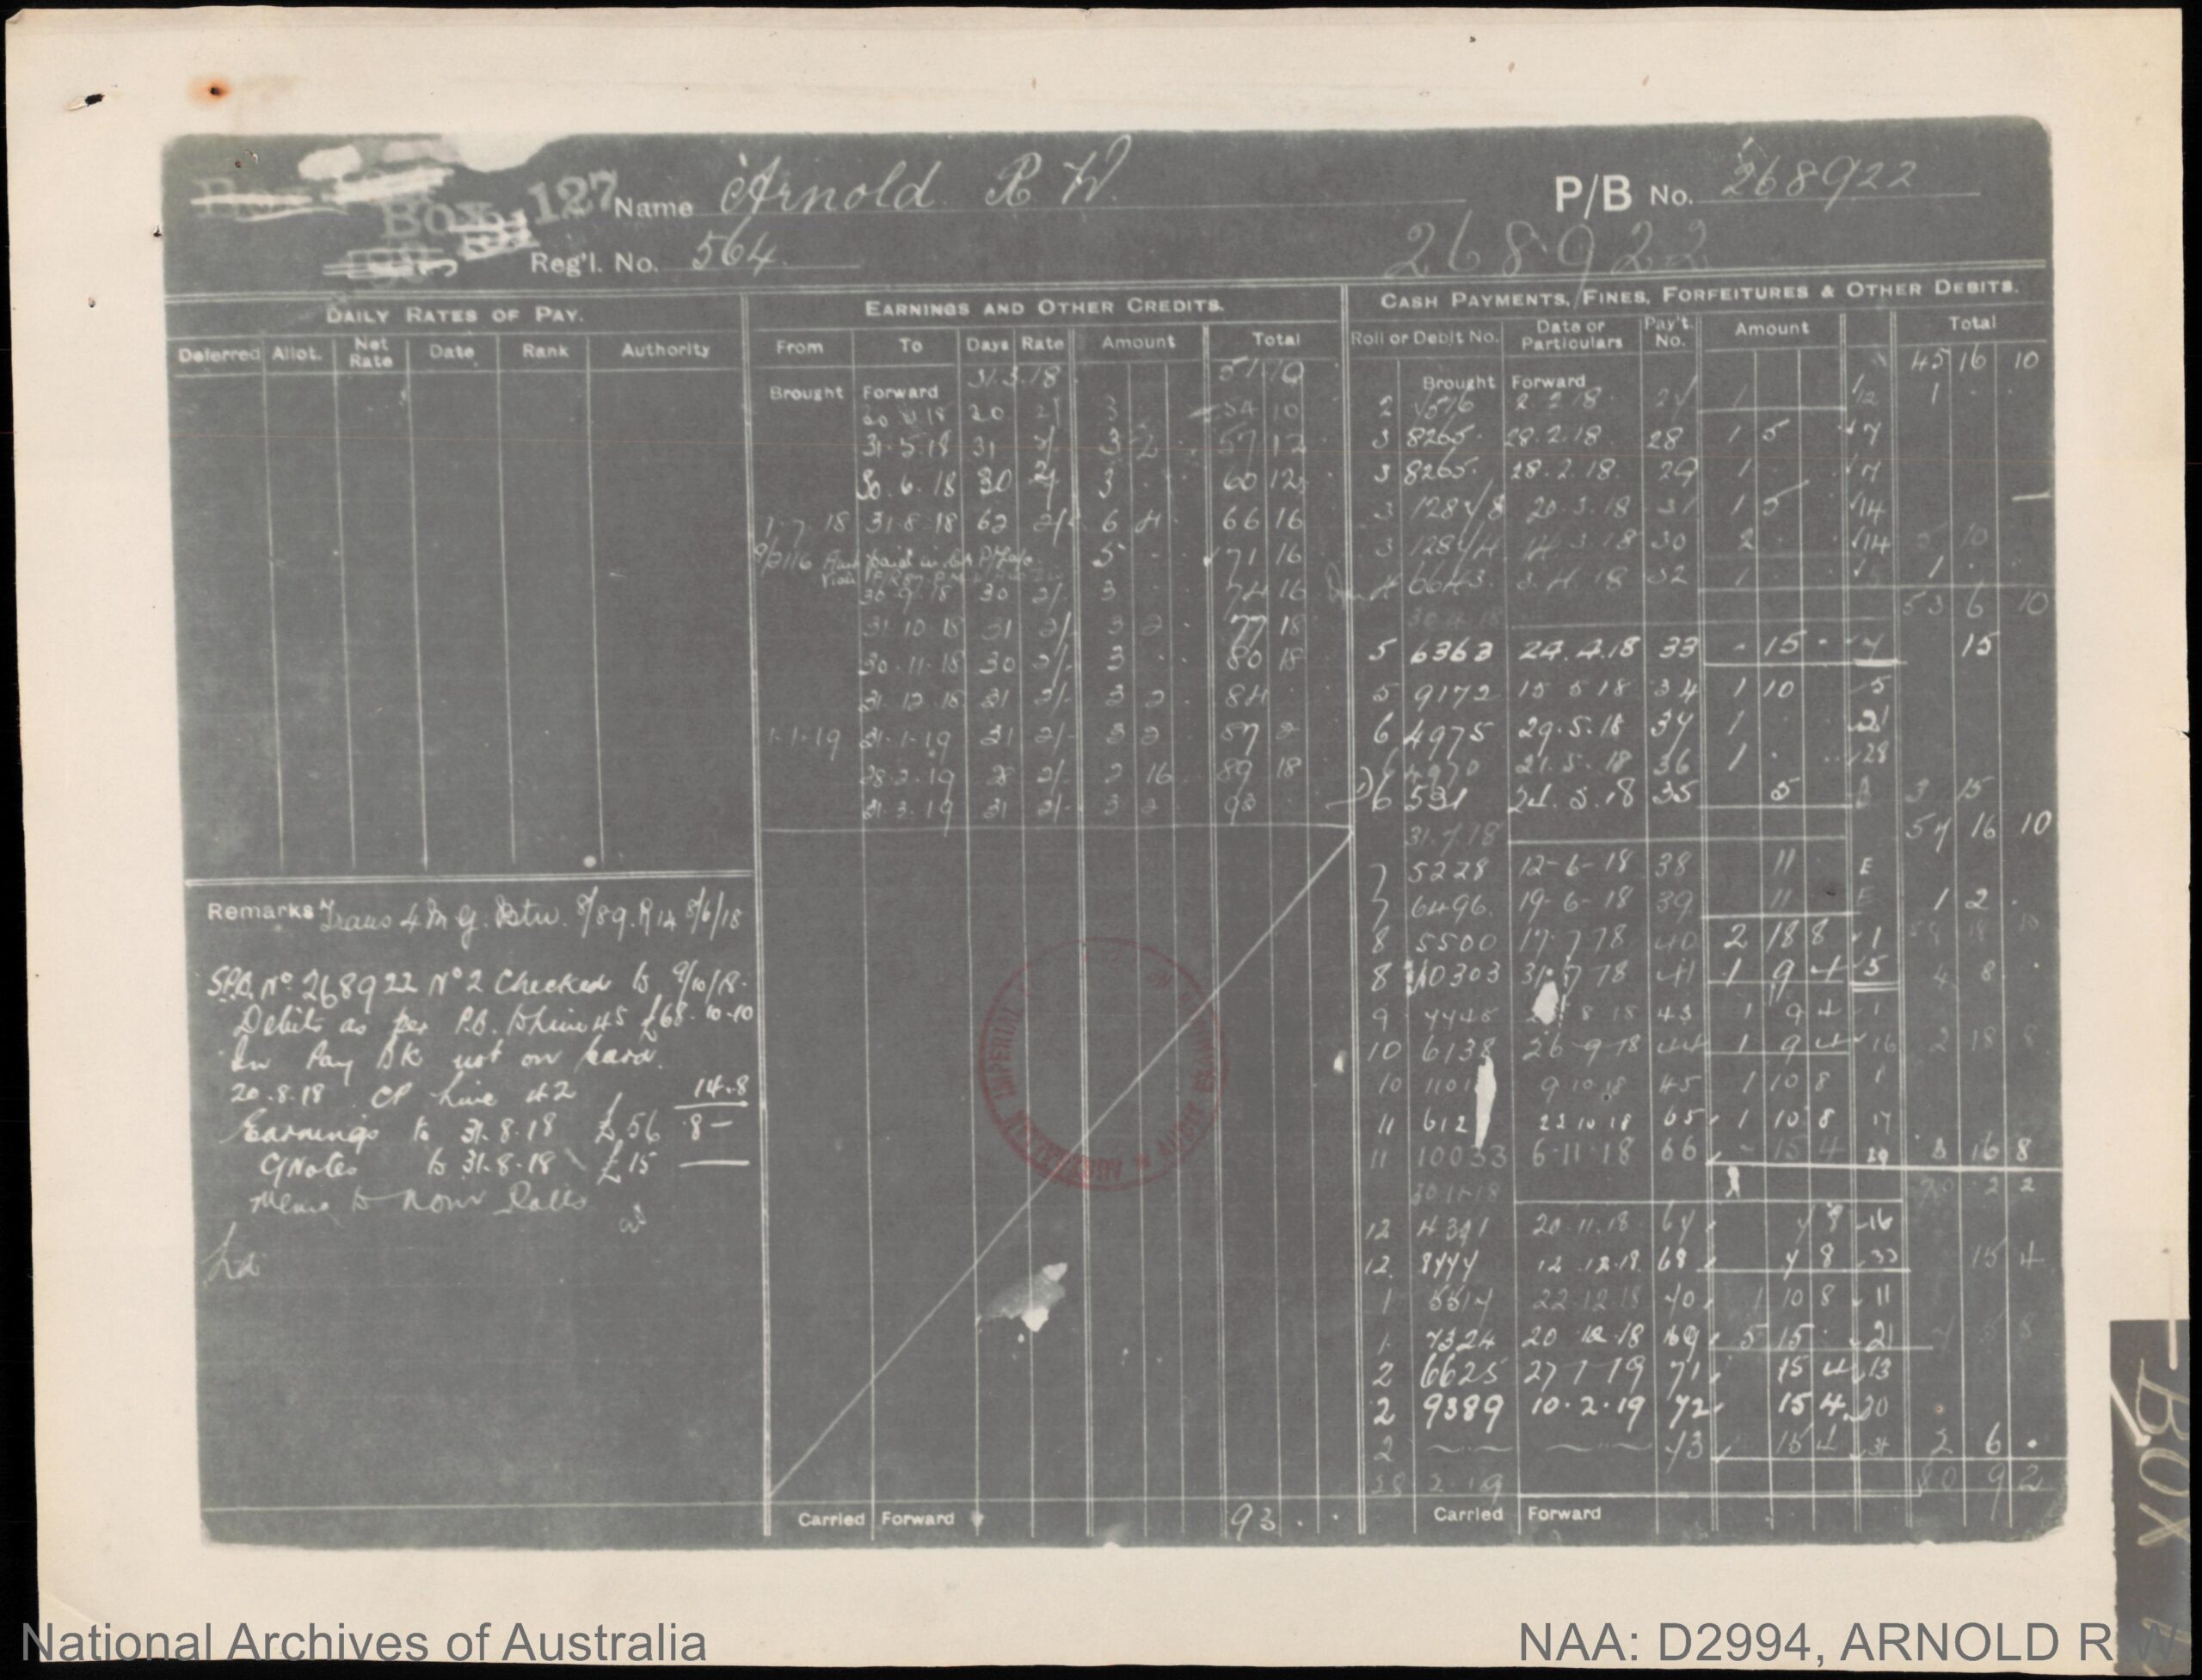 Box 127
Name Arnold R W.
P/B No. 268922
268922
Reg'l. No. 564.
DAILY RATES OF PAY.
Deferred Allot. Net Rate Date Rank Authority
EARNINGS AND OTHER CREDITS.
From To Days Rate Amount Total
Brought Forward 31.3.18 51 10
20 2/ 3 54 10
31.5.18 31 2/ 3 2 57 12
30.6.18 30 2/ 3 60 12
1-7-18 31-8-18 62 2/- 6 4 66 16
paid in 5 71 16
30.9.18 30 2/- 3 74 16
31 10 18 31 2/- 3 2 77 18
30-11-18 30 2/- 3 80 18
31.12.18 31 2/- 3 2 84
1-1-19 31-1-19 31 2/- 3 2 87 2
28.2.19 28 2/- 2 16 89 18
31.3.19 31 2/- 3 2 93
Carried Forward 93
CASH PAYMENTS, FINES, FORFEITURES & OTHER DEBITS.
Roll or Debit No. Date or Particulars Pay't. No. Amount Total
45 16 10
Brought Forward
2 7516 2.2.18 27 1 12 1
3 8265. 28.2.18 28 1 5 7
3 8265. 28.2.18. 29 1 7
3 12878 20.3.18 31 1 5 14
3 14.3.18 30 2 14 5 10
4 6643. 3.4.18 32 1 1
53 6 10
5 6363 24.4.18 33 - 15 - 7 15
5 9172 15 5 18 34 1 10 5
6 4975 29.5.18 37 1 21
4970 21.5.18 36 1 28
6 531 24.5.18 35 5 3 15
31.7.18 57 16 10
7 5228 12-6-18 38 11 E
7 6496. 19-6-18 39 11 E 1 2
8 5500 17.7.18 40 2 18 8 1 58 18 10
8 10303 31.7.18 41 1 9 4 5 4 8
9 7745 8 18 43 1 9 4 1
10 6138 26-9-18 44 1 9 4 16 2 18 8
10 1101 9 10 18 45 1 10 8 1
11 612 22 10 18 65 1 10 8 17
11 10033 6-11-18 66 - 15 4 29 3 16 8
30 11-18 2 2
12 4391 20.11.18 67 7 8 16
12. 8777 12.12.18. 68 7 8 33 15 4
1 5517 22.12.18 70 1 10 8 11
1. 7324 20 12.18 69 5 15 21 7 5 8
2 6625 27 1 19 71 15 4 13
2 9389 10.2.19 72 15 4 20
2 73 15 4 2 6
28 2.19 80 9 2
Carried Forward
Remarks Trans 4 M G. Btn. 8/89. R12 8/6/18
S.P.B. No 268922 No 2 Checked to 9/10/18.
Debits as per P.B. to line 45 £68-10-10
In Pay Bk not on card.
20.8.18 CP line 42 14.8
Earnings to 31.8.18 £56 8 -
GNotes to 31-8-18 £15
BOX
National Archives of Australia
NAA: D2994, ARNOLD R W